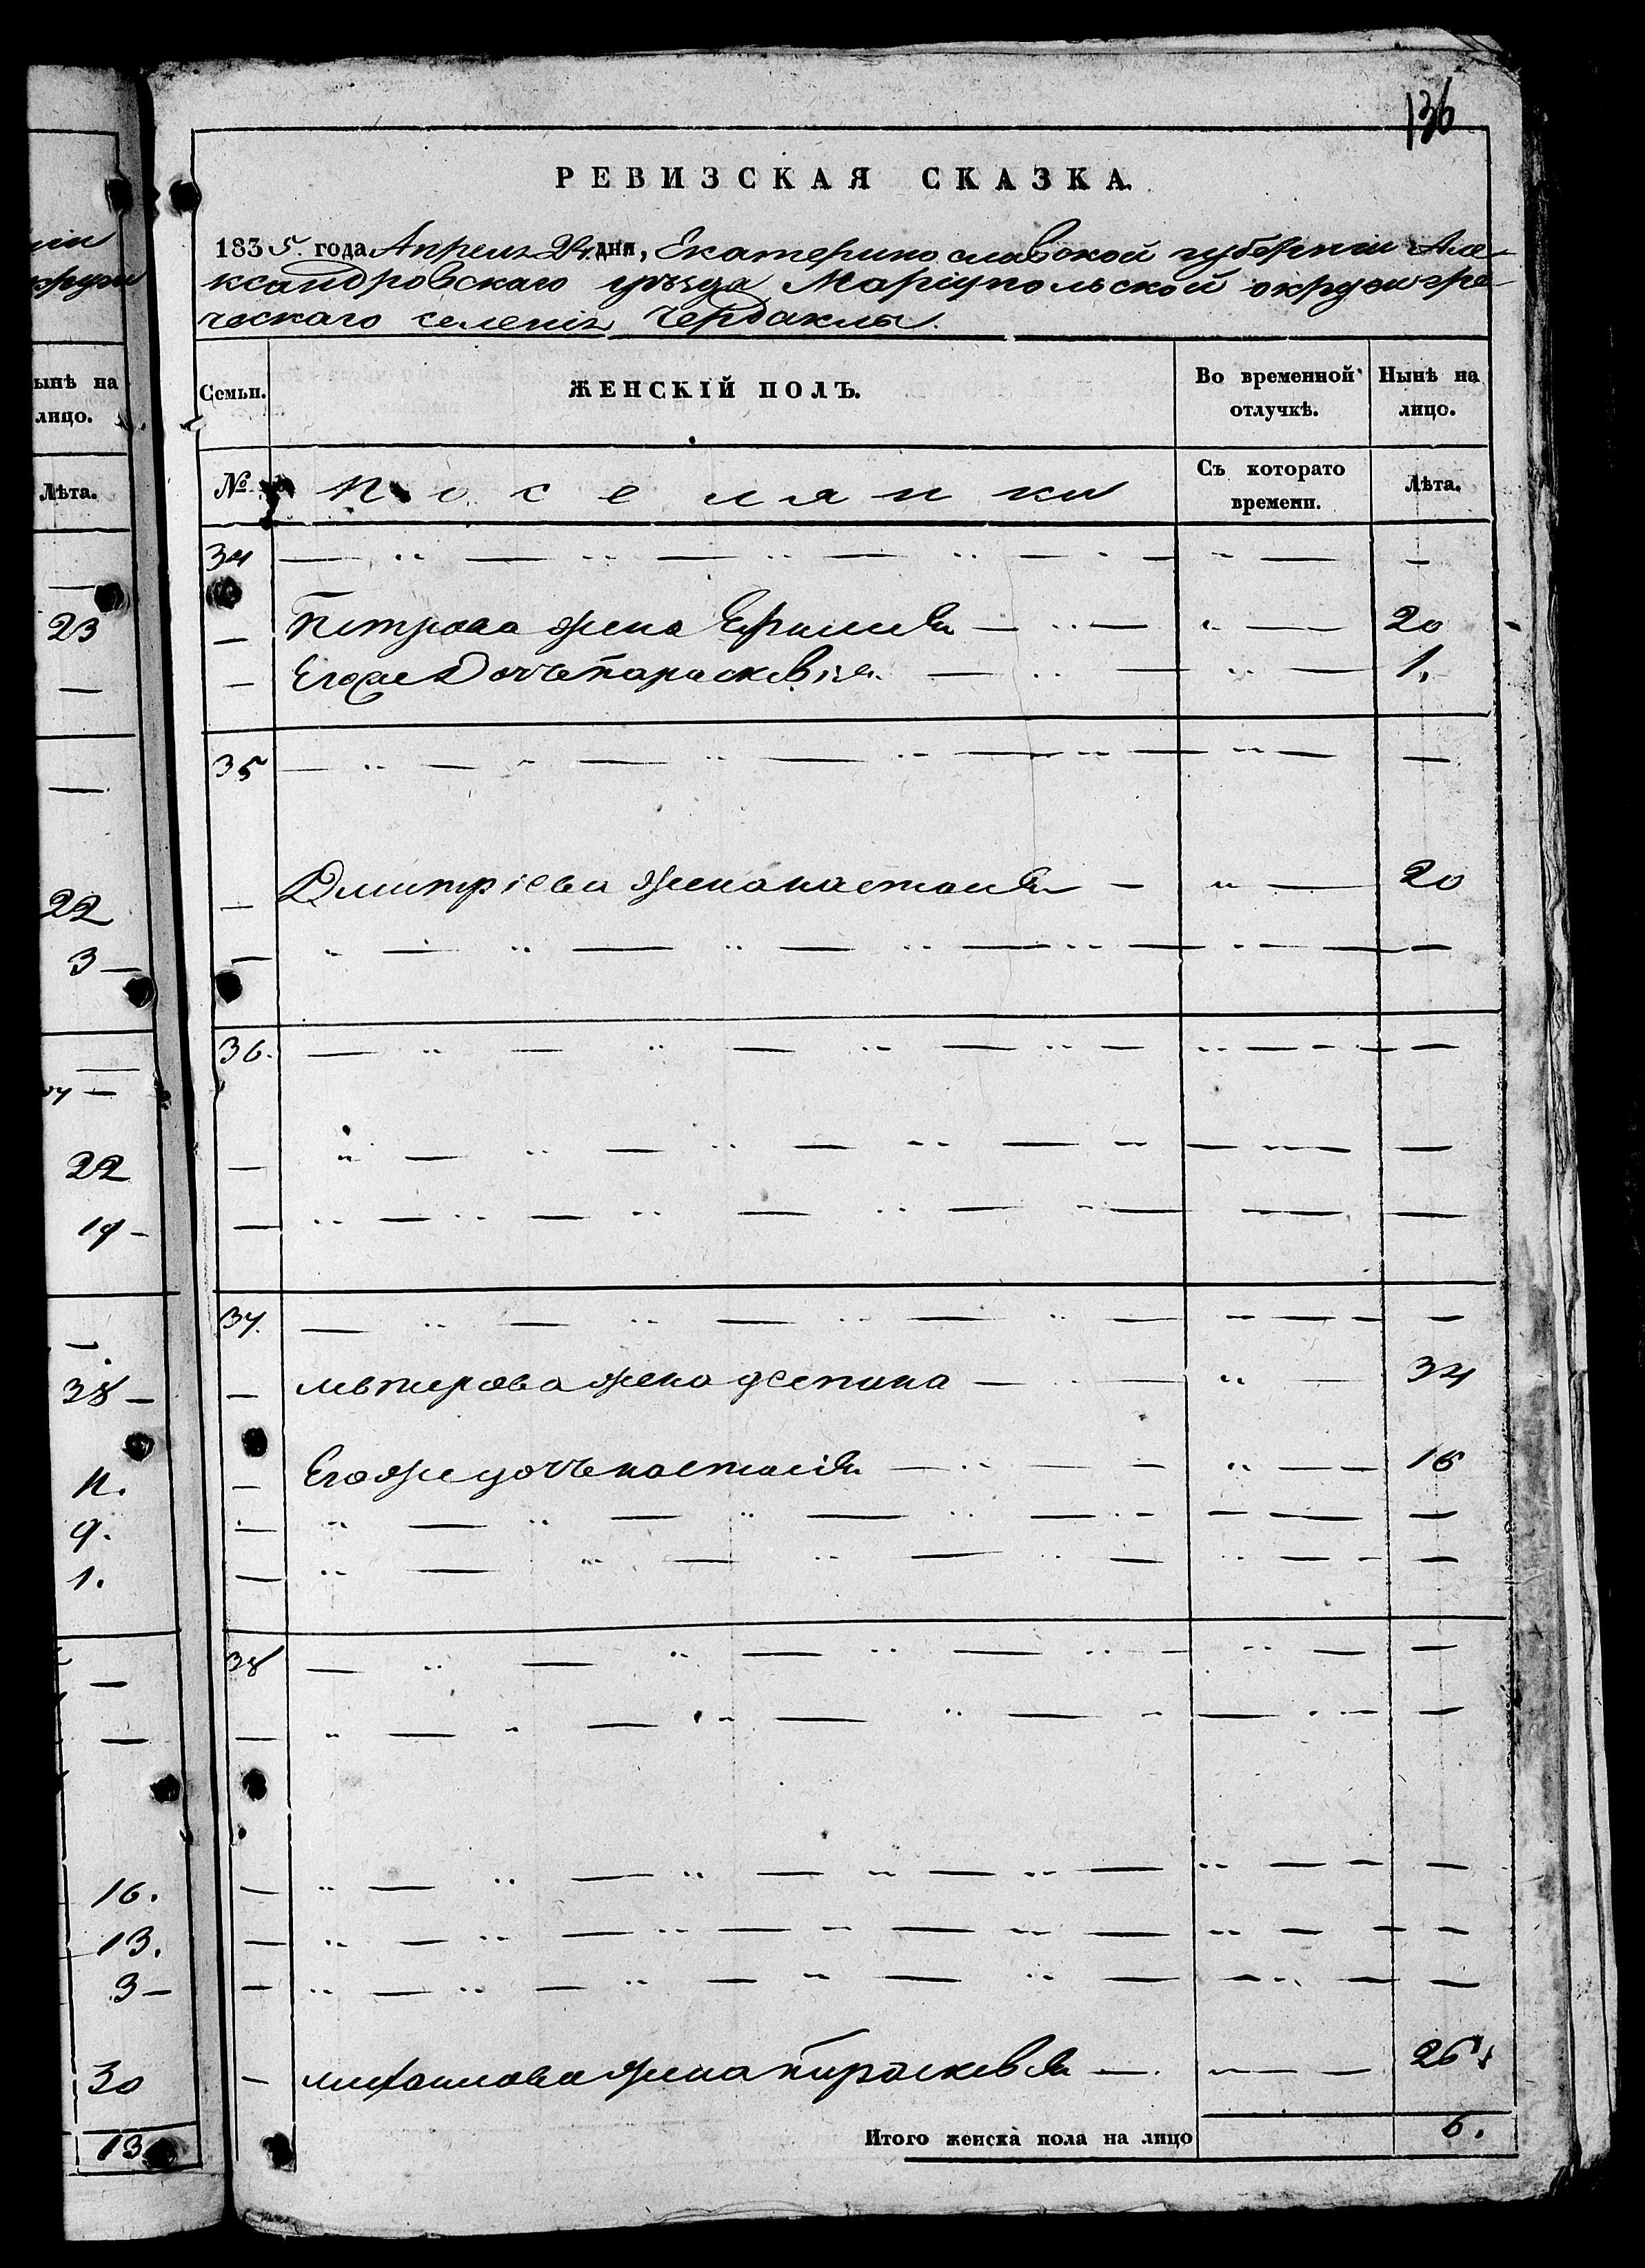 136
РЕВИЗСКАЯ СКАЗКА.
1835. года Апреля 24 дня, Екатеринославской губерніи Але-
ксандровскаго уѣзда Маріупольской округи гре-
ческаго селенія Чердаклы.
Семьи. ЖЕНСКІЙ ПОЛЪ. Во временной отлучкѣ. Нынѣ на лицо.
№ Поселянки Съ котораго времени. Лѣта.
34 — —
— Петрова жена — 20
— Егоже Дочь параскевія — 1.
35 — —
— Дмитріева жена настасія — 20
— — —
36. — —
— — —
— — —
37. — —
— жена деспина — 34
— Егоже дочь настасія — 16
— — —
— — —
38 — —
— — —
— — —
— — —
— — —
— михаилова жена параскевія — 26
Итого женска пола на лицо 6.
ынѣ на
лицо.
Лѣта.
—
23
—
—
22
3 —
22
19 -
38 —
9.
1.
—
—
16.
13.
3 —
30
13